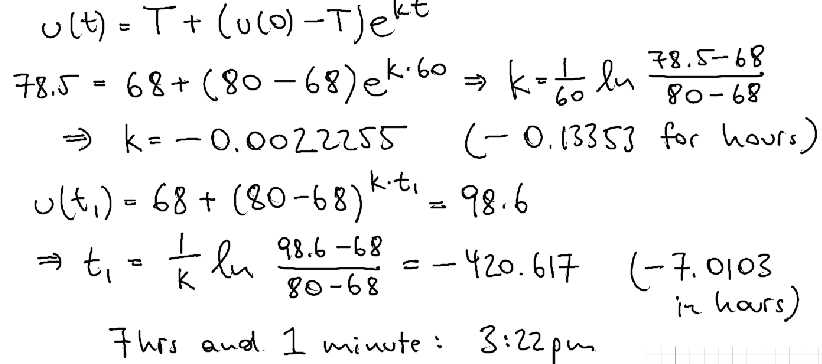 u(t) = T + (u(0) - T)e^{kt}
78.5 = 68 + (80 - 68)e^{k·60} ⇒ k = \frac{1}{60} ln \frac{78.5-68}{80-68}
⇒ k = -0.0022255 (-0.13353 for hours)
u(t₁) = 68 + (80-68)^{k·t₁} = 98.6
⇒ t₁ = \frac{1}{k} ln \frac{98.6-68}{80-68} = -420.617 (-7.0103
in hours)
7hrs and 1 minute: 3:22pm